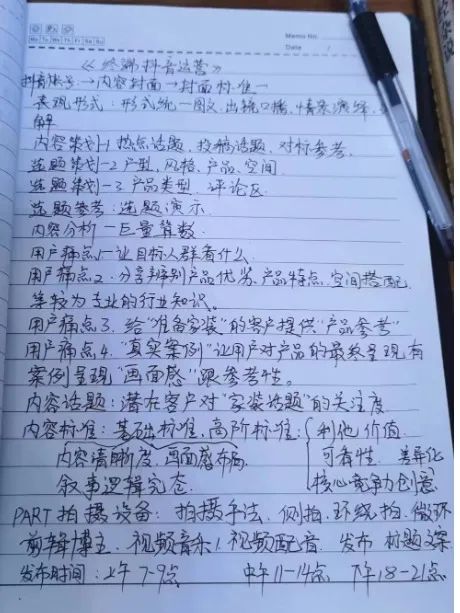 Memo No.
Mo Tu We Th Fr Sa Su
Date /
《终端抖音运营》
抖音帐号→内容封面→封面标准一
表现形式：形式统一图文.出镜口播.情景演绎.
解
内容策划-1 热点话题、投稿话题、对标参考.
选题策划-2 户型、风格、产品、空间
选题策划-3 产品类型、评论区
选题参考：选题演示.
内容分析一巨量算数.
用户痛点1一让目标人群看什么.
用户痛点2.分享辨别产品优劣.产品特点.空间搭配.
等较为专业的行业知识。
用户痛点3.给"准备家装"的客户提供"产品参考"
用户痛点4."真实案例"让用户对产品的最终呈现有
案例呈现"画面感"跟参考性。
内容话题：潜在客户对"家装话题"的关注度
内容标准：基础标准.高阶标准：利他 价值
内容清晰度.画面感布局. 可看性. 差异化
叙事逻辑完态 核心竞争力创意
PART 拍摄设备：拍摄手法、侧拍.环绕拍.
剪辑博主、视频音乐！视频配音.发布 标题文案
发布时间：上午7-9点 中午11-14点 下午18-21点